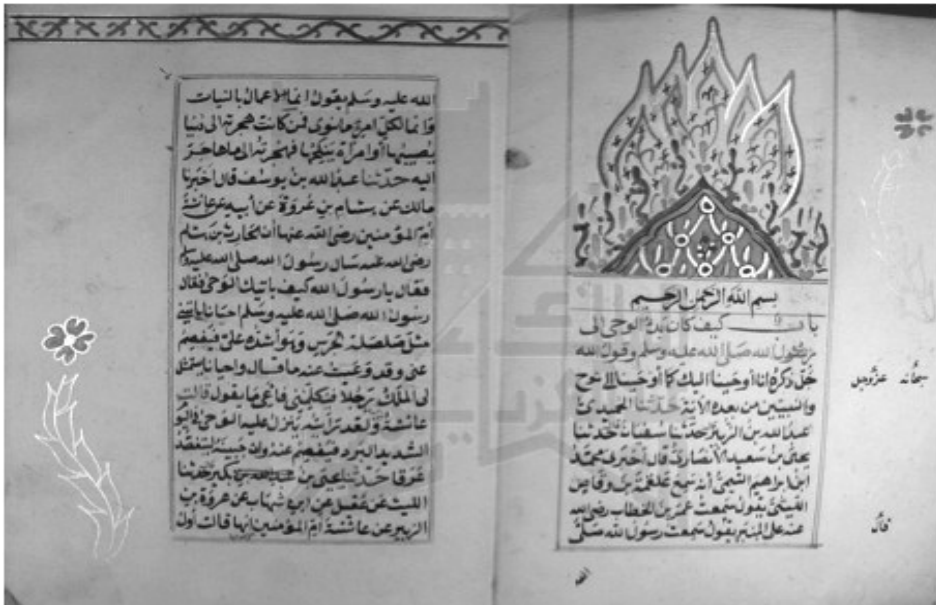 بسم الله الرحمن الرحيم
باب كيف كان بدء الوحى الى
رسول الله صلى الله عليه وسلم وقول الله
جل ذكره انا أوحينا اليك كما أوحينا الى نوح
والنبيين من بعده الآية حدثنا الحميدى
عبد الله بن الزبير حدثنا سفيان حدثنا
يحيى بن سعيد الأنصارى قال أخبرنى محمد
ابن ابراهيم التيمى أنه سمع علقمة بن وقاص
الليثى يقول سمعت عمر بن الخطاب رضى الله
عنه على المنبر يقول سمعت رسول الله صلى
سبحانه عزوجل
قال
الله
الله عليه وسلم يقول انما الاعمال بالنيات
وانما لكل امرئ ما نوى فمن كانت هجرته الى دنيا
يصيبها أو امرأة ينكحها فهجرته الى ما هاجر
اليه حدثنا عبد الله بن يوسف قال اخبرنا
مالك عن هشام بن عروة عن أبيه عن عائشة
أم المؤمنين رضى الله عنها أن الحارث بن هشام
رضى الله عنه سال رسول الله صلى الله عليه وسلم
فقال يا رسول الله كيف ياتيك الوحى فقال
رسول الله صلى الله عليه وسلم احيانا ياتينى
مثل صلصلة الجرس وهو أشده على فيفصم
عنى وقد وعيت عنه ما قال واحيانا يتمثل
لى الملك رجلا فيكلمنى فأعى ما يقول قالت
عائشة ولقد رأيته ينزل عليه الوحى فى اليوم
الشديد البرد فيفصم عنه وان جبينه ليتفصد
عرقا حدثنا يحيى بن بكير حدثنا
الليث عن عقيل عن ابن شهاب عن عروة بن
الزبير عن عائشة ام المؤمنين انها قالت أول